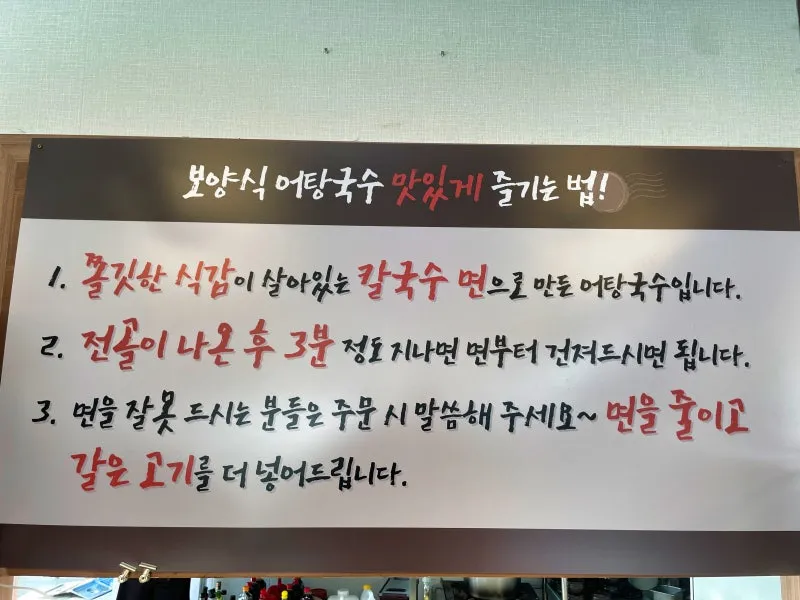 보양식 어탕국수 맛있게 즐기는 법!
1. 쫄깃한 식감이 살아있는 칼국수 면으로 만든 어탕국수입니다.
2. 전골이 나온 후 3분 정도 지나면 면부터 건져드시면 됩니다.
3. 면을 잘 못 드시는 분들은 주문 시 말씀해 주세요~ 면을 줄이고
갈은 고기를 더 넣어드립니다.